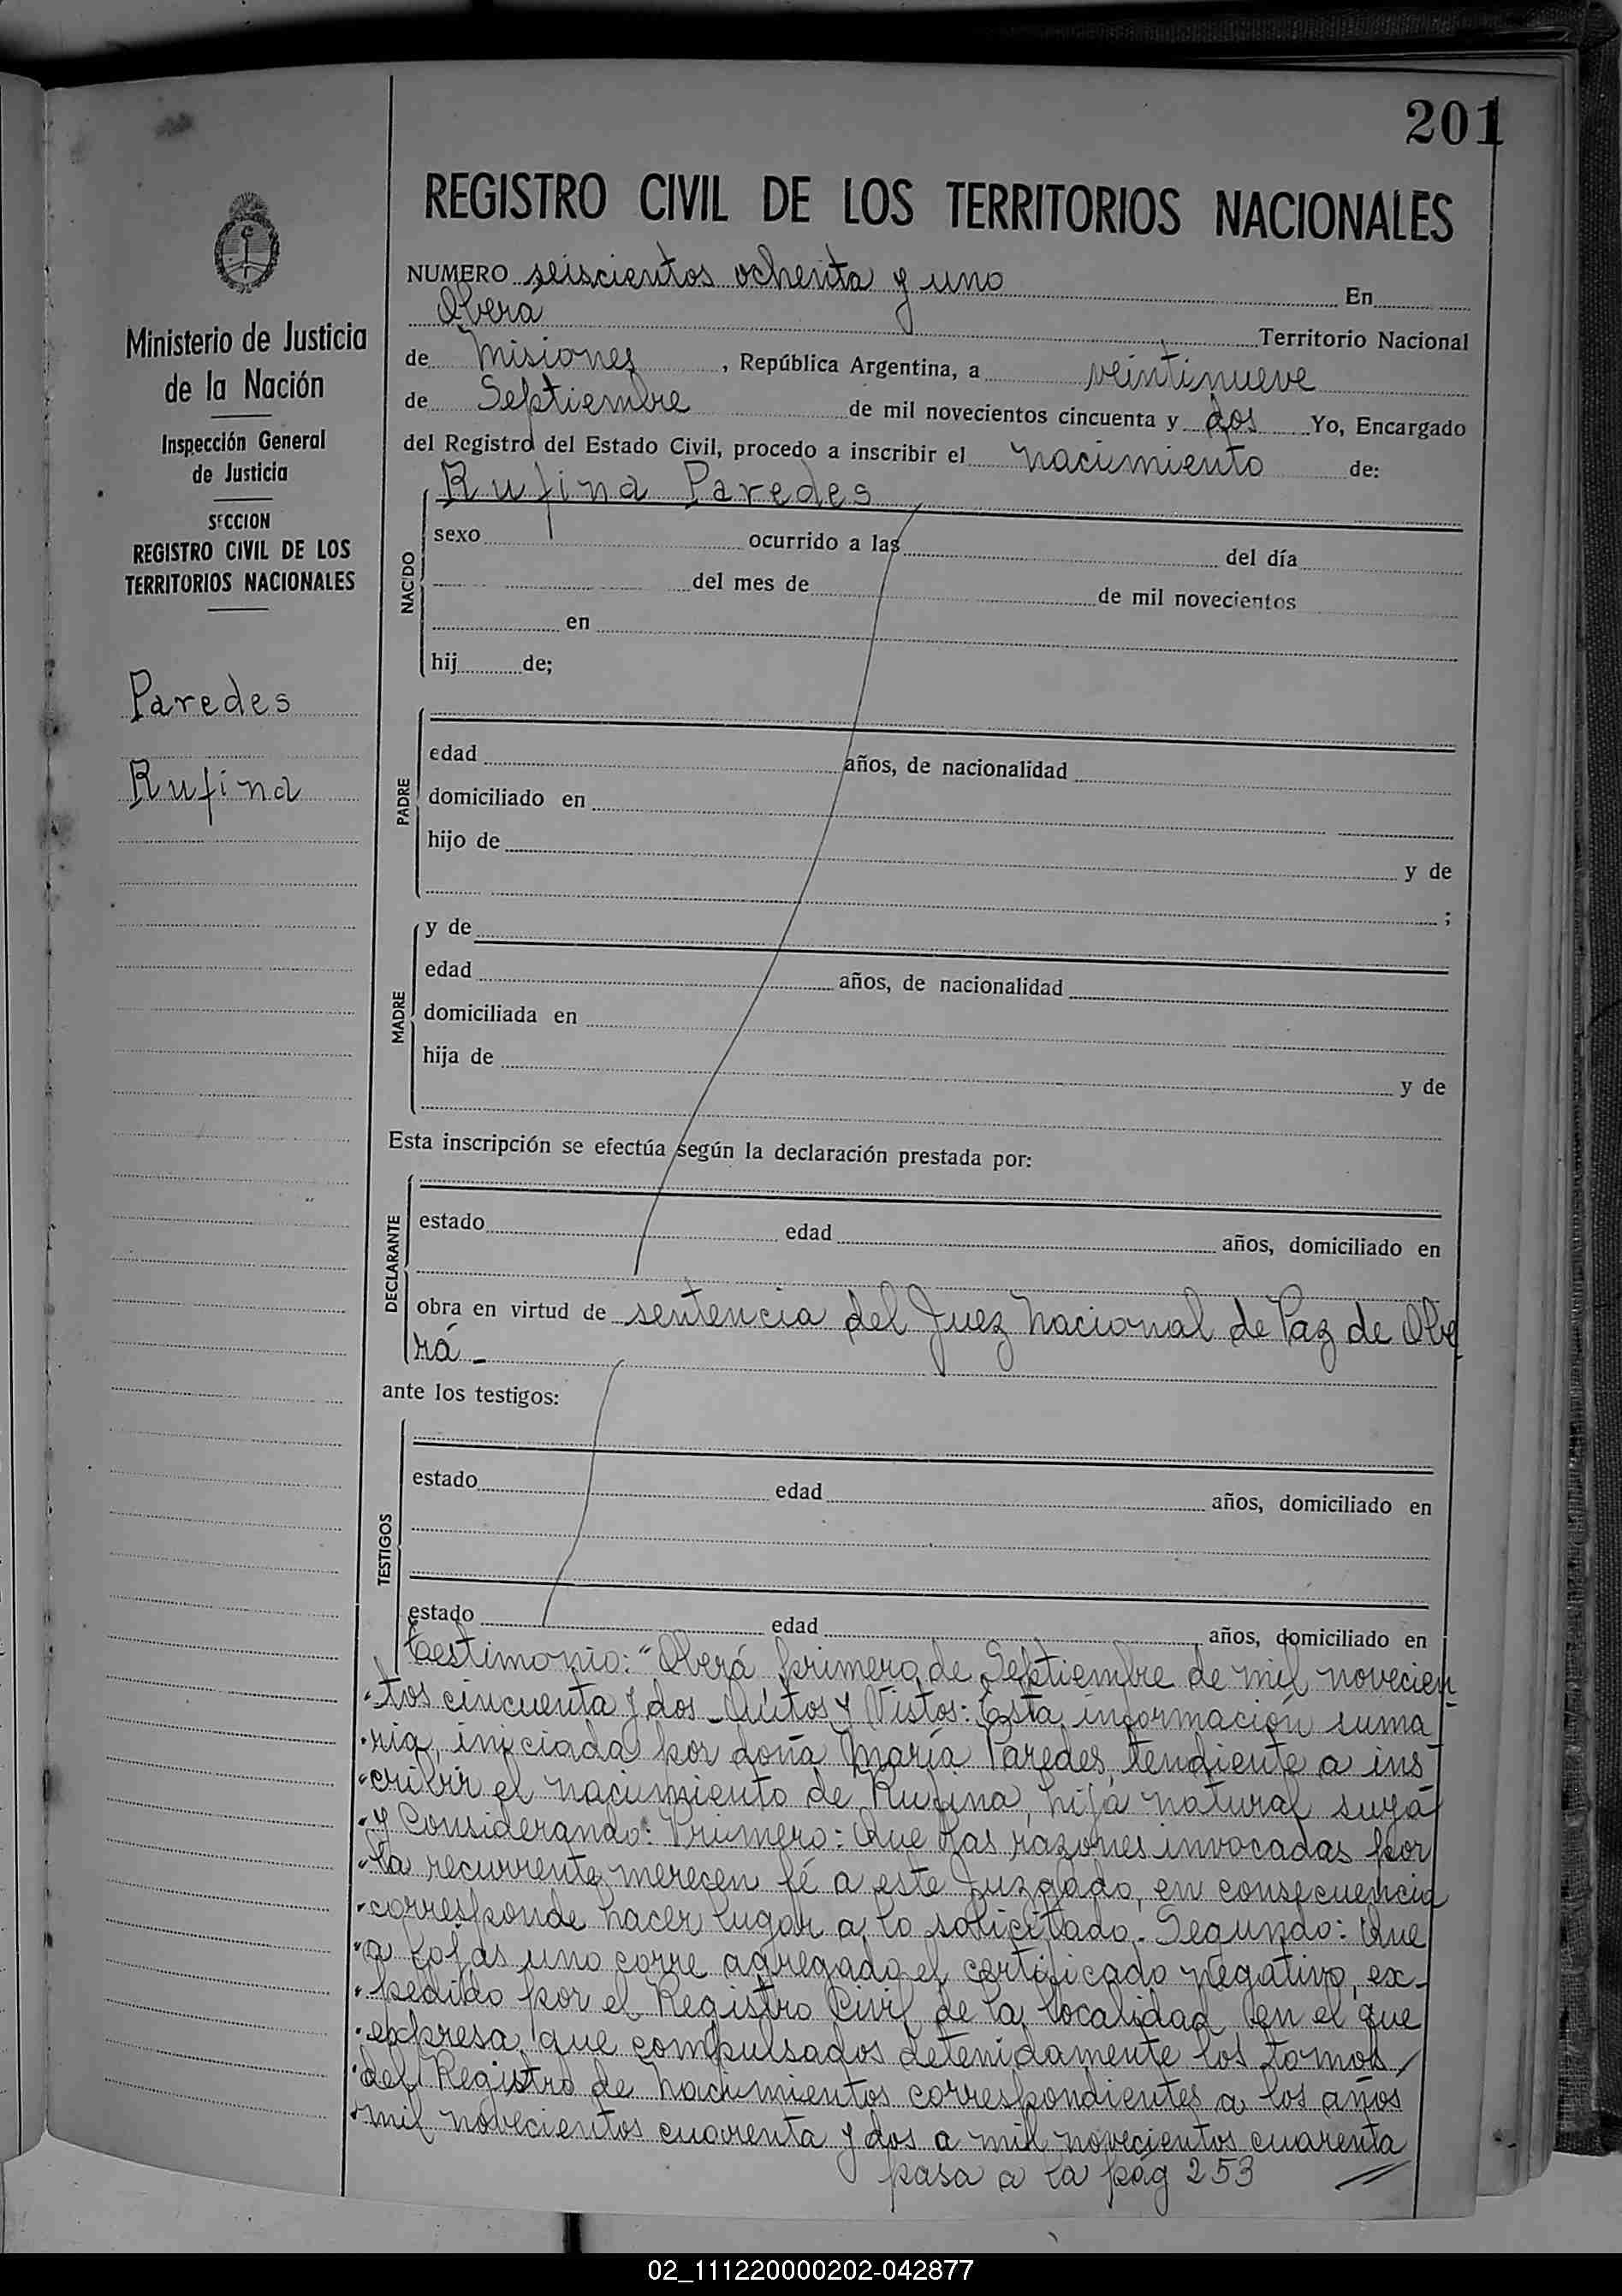 201
REGISTRO CIVIL DE LOS TERRITORIOS NACIONALES
Ministerio de Justicia
de la Nación
Inspección General
de Justicia
SECCION
REGISTRO CIVIL DE LOS
TERRITORIOS NACIONALES
Paredes
Rufina
NUMERO seiscientos ochenta y uno En
Oberá Territorio Nacional
de Misiones, República Argentina, a veintinueve
de Septiembre de mil novecientos cincuenta y dos Yo, Encargado
del Registro del Estado Civil, procedo a inscribir el nacimiento de:
Rufina Paredes
NACIDO
sexo ocurrido a las del día
del mes de de mil novecientos
en
hij de;
PADRE
edad años, de nacionalidad
domiciliado en
hijo de y de
;
MADRE
y de
edad años, de nacionalidad
domiciliada en
hija de y de
Esta inscripción se efectúa según la declaración prestada por:
DECLARANTE
estado edad años, domiciliado en
obra en virtud de sentencia del Juez Nacional de Paz de Obe
rá -
ante los testigos:
TESTIGOS
estado edad años, domiciliado en
estado edad años, domiciliado en
Testimonio: "Oberá primero de Septiembre de mil novecien-
"tos cincuenta y dos - Autos y Vistos: Esta información suma
"ria, iniciada por doña María Paredes, tendiente a ins
"cribir el nacimiento de Rufina, hija natural suya
"y Considerando: Primero: Que las razones invocadas por
"la recurrente merecen fé a este Juzgado, en consecuencia
"corresponde hacer lugar a lo solicitado. Segundo: Que
"a fojas uno corre agregado el certificado negativo, ex-
"pedido por el Registro Civil de la localidad en el que
"expresa que compulsados detenidamente los tomos
"del Registro de Nacimientos correspondientes a los años
"mil novecientos cuarenta y dos a mil novecientos cuarenta
pasa a la pág 253
02_111220000202-042877